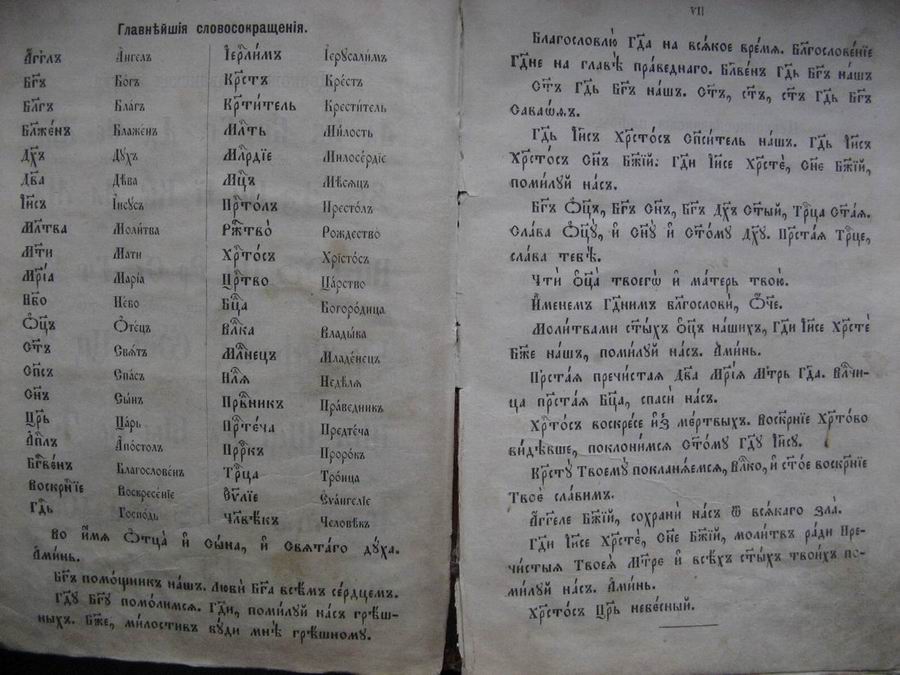 Главнѣйшія словосокращенія.
А҆́гг҃лъ А҆́нгелъ І҆ер҇ли́мъ І҆ерꙋсали́мъ
Бг҃ъ Бо́гъ Кр҇тъ Кре́стъ
Бл҃гъ Бла́гъ Кр҇ти́тель Крести́тель
Бл҃же́нъ Блаже́нъ Мл҇ть Ми́лость
Дх҃ъ Дꙋ́хъ Млⷭ҇рдїе Милосе́рдїе
Дв҃а Дѣ́ва Мц҇ъ Мѣ́сѧцъ
І҆и҃съ І҆исꙋ́съ Прⷭ҇то́лъ Престо́лъ
Мл҃тва Моли́тва Ржⷭ҇тво̀ Рождество
Мт҃и Мати Хрⷭ҇то́съ Хрїсто́съ
Мр҃і́а Марі́а Црⷭ҇тво Ца́рство
Нб҃о Не́бо Бц҃а Богоро́дица
Ѻ҆ц҃ъ Ѻ҆те́цъ Влⷣка Влады́ка
Ст҃ъ Свѧ́тъ Млⷣнецъ Младе́нецъ
Сп҃съ Спа́съ Нлⷣѧ Недѣ́лѧ
Сн҃ъ Сы́нъ Првⷣникъ Пра́ведникъ
Цр҃ь Ца́рь Прⷣте́ча Предте́ча
А҆пⷭ҇лъ А҆по́столъ Прⷪ҇ркъ Проро́къ
Бл҃гве́нъ Благослове́нъ Трⷪ҇ца Тро́ица
Воскрⷭ҇нїе Воскресе́нїе Е҆ѵⷢ҇лїе Е҆ѵа́нгелїе
Гдⷭ҇ь Госпо́дь Чл҃вѣ́къ Человѣ́къ
Во и҆́мѧ Ѻ҆тца̀ и҆ Сы́на, и҆ Свѧта́го дꙋ́ха.
А҆ми́нь.
Бг҃ъ помо́щникъ на́шъ. Любѝ Бг҃а всѣ́мъ се́рдцемъ.
Гдⷭ҇ꙋ Бг҃ꙋ помо́лимсѧ. Гдⷭ҇и, поми́лꙋй на́съ грѣ́ш-
ныхъ. Бж҃е, ми́лостивъ бꙋ́ди мнѣ̀ грѣ́шномꙋ.
VII
Благословлю̀ Гдⷭ҇а на всѧ́кое вре́мѧ. Бл҃гослове́нїе
Гдⷭ҇не на главѣ̀ пра́веднаго. Бл҃ве́нъ Гдⷭ҇ь Бг҃ъ на́шъ
Ст҃ъ Гдⷭ҇ь Бг҃ъ на́шъ. Ст҃ъ, ст҃ъ, ст҃ъ Гдⷭ҇ь Бг҃ъ
Саваѡ́ѳъ.
Гдⷭ҇ь І҆и҃съ Хрⷭ҇то́съ Сп҃си́тель на́шъ. Гдⷭ҇ь І҆и҃съ
Хрⷭ҇то́съ Сн҃ъ Бж҃їй: Гдⷭ҇и І҆и҃се Хрⷭ҇тѐ, Сн҃е Бж҃їй,
поми́лꙋй на́съ.
Бг҃ъ Ѻ҆ц҃ъ, Бг҃ъ Сн҃ъ, Бг҃ъ Дх҃ъ Ст҃ый, Трⷪ҇ца Ст҃а́ѧ.
Сла́ва Ѻ҆ц҃ꙋ̀, и҆ Сн҃ꙋ и҆ Ст҃о́мꙋ Дх҃ꙋ. Прⷭ҇та́ѧ Трⷪ҇це,
сла́ва тебѣ̀.
Чтѝ ѻ҆ц҃а̀ твоего̀ и҆ ма́терь твою̀.
И҆́менемъ Гдⷭ҇нимъ бл҃гословѝ, Ѻ҆́ч҃е.
Моли́твами ст҃ы́хъ ѻ҆ц҃ъ на́шихъ, Гдⷭ҇и І҆и҃се Хрⷭ҇тѐ
Бж҃е на́шъ, поми́лꙋй на́съ. А҆ми́нь.
Прⷭ҇та́ѧ пречи́стаѧ Дв҃а Мр҃і́ѧ Мт҃рь Гдⷭ҇а. Влⷣчи-
ца прⷭ҇та́ѧ Бц҃а, спасѝ на́съ.
Хрⷭ҇то́съ воскре́се и҆з̾ ме́ртвыхъ. Воскрⷭ҇нїе Хрⷭ҇то́во
ви́дѣвше, поклони́мсѧ Ст҃о́мꙋ Гдⷭ҇ꙋ І҆и҃сꙋ.
Крⷭ҇тꙋ̀ Твоемꙋ̀ покланѧ́емсѧ, Влⷣко, и҆ ст҃о́е воскрⷭ҇нїе
Твоѐ сла́вимъ.
А҆́гг҃еле Бж҃їй, сохранѝ на́съ ѿ всѧ́каго зла̀.
Гдⷭ҇и І҆и҃се Хрⷭ҇тѐ, Сн҃е Бж҃їй, моли́твъ ра́ди Пре-
чи́стыѧ Твоеѧ̀ Мт҃ре и҆ всѣ́хъ ст҃ы́хъ твои́хъ по-
ми́лꙋй на́съ. А҆ми́нь.
Хрⷭ҇то́съ Цр҃ь небе́сный.